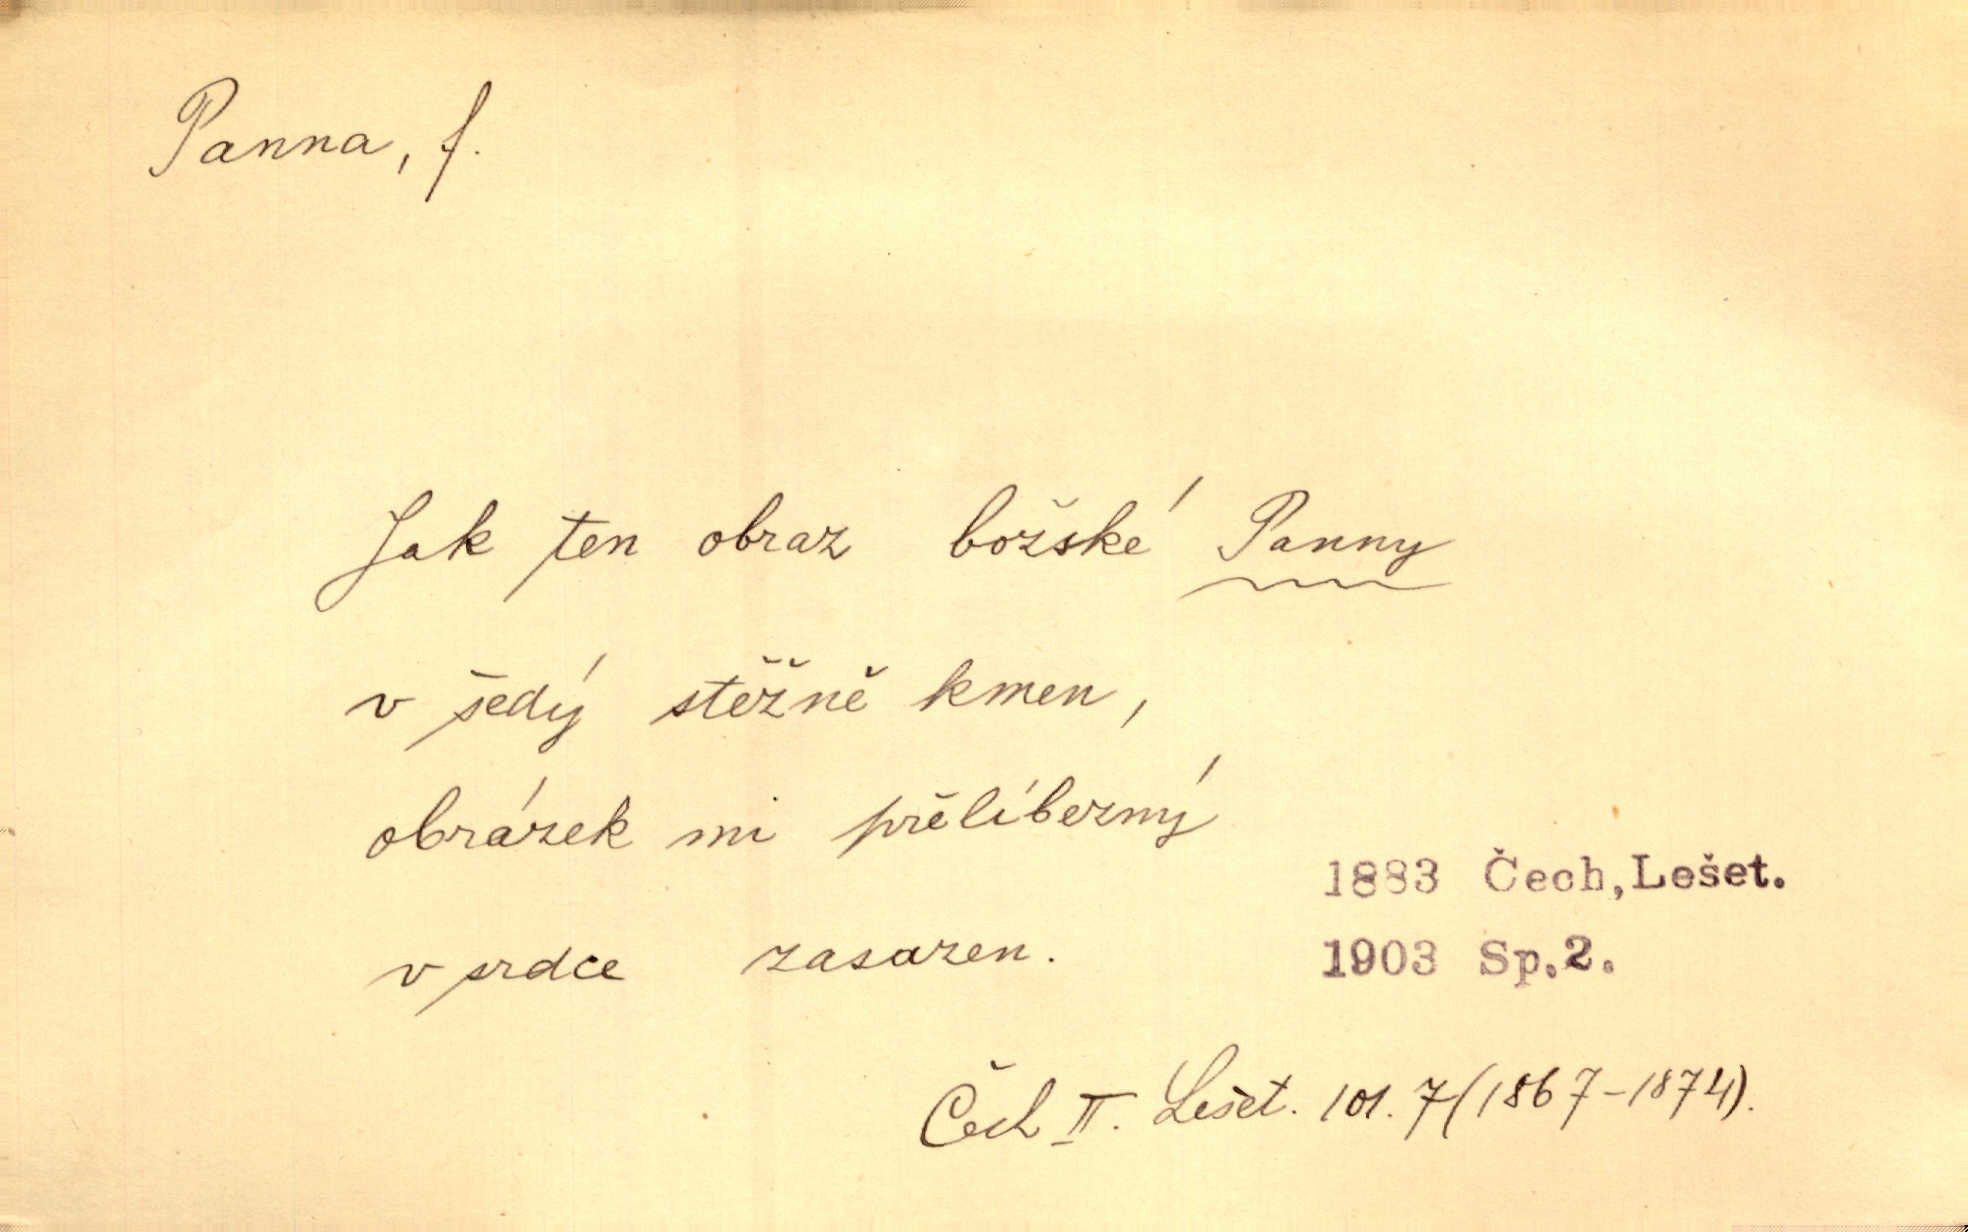 Panna, f.
Jak ten obraz božské Panny
v šedý stěžně kmen,
obrázek mi přělíbezný
v srdce zasazen.
1883 Čech, Lešet.
1903 Sp.2.
Čech II. Lešet. 101. 7 (1867-1874).